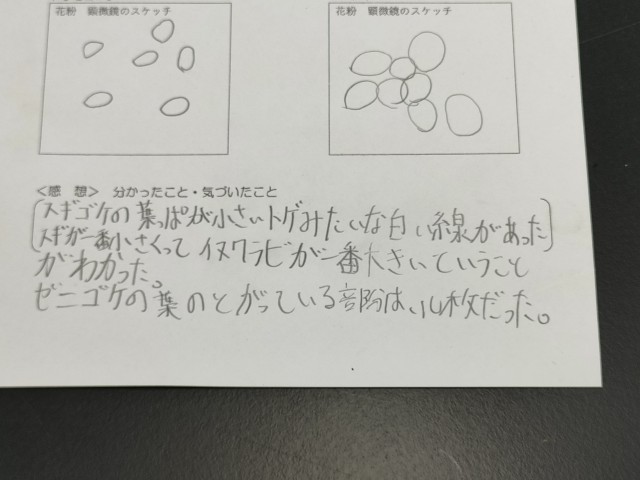 花粉 顕微鏡のスケッチ
花粉 顕微鏡のスケッチ
<感 想> 分かったこと・気づいたこと
(スギゴケの葉っぱが小さいトゲみたいな白い線があった)
スギが一番小さくって イヌワラビが一番大きいていうこと
がわかった。
ゼニゴケの葉のとがっている部分は、14枚だった。